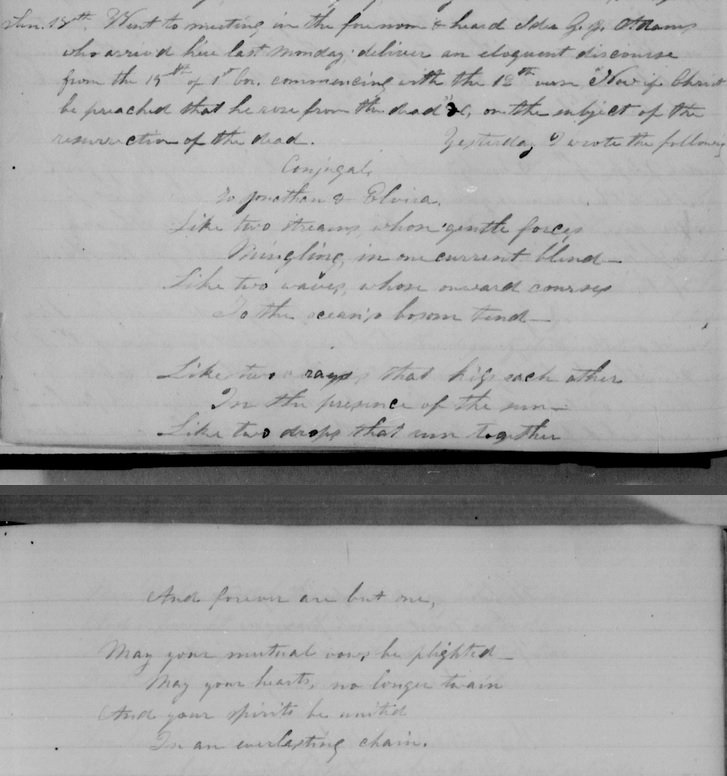 Sun. 18th, Went to meeting in the forenoon & heard Elder G. J. Adams
who arrived here last Monday, deliver an eloquent discourse
from the 15th of 1st Cor. commencing with the 12th verse Now if Christ
be preached that he rose from the dead &c, on the subject of the
resurrection of the dead. Yesterday I wrote the following
Conjugal,
To Jonathan & Elvira.
Like two streams, whose gentle forces
Mingling, in one current blend—
Like two waves, whose onward courses
To the ocean's bosom tend—
Like two rays that kiss each other
In the presence of the sun—
Like two drops that run together
And forever are but one,
May your mutual vows be plighted—
May your hearts, no longer twain
And your spirits be united
In an everlasting chain.